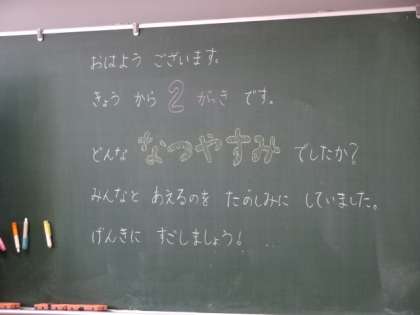 おはよう ございます。
きょう から 2 がっき です。
どんな なつやすみ でしたか?
みんなと あえるのを たのしみに していました。
げんきに すごしましょう!